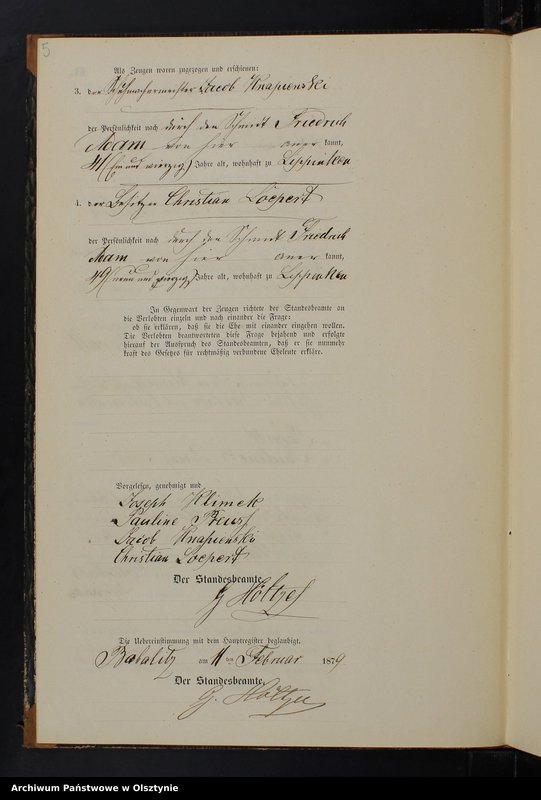 5
Als Zeugen waren zugezogen und erschienen:
3. der Schuhmachermeister Jacob Knapienski
der Persönlichkeit nach durch den Schmidt Friedrich
Adam von hier aner kannt,
41 (ein und vierzig) Jahre alt, wohnhaft zu
4. der Besitzer Christian Loepert
der Persönlichkeit nach durch den Schmidt Friedrich
Adam von hier aner kannt,
49 (neun und vierzig) Jahre alt, wohnhaft zu
In Gegenwart der Zeugen richtete der Standesbeamte an
die Verlobten einzeln und nach einander die Frage:
ob sie erklären, daß sie die Ehe mit einander eingehen wollen.
Die Verlobten beantworteten diese Frage bejahend und erfolgte
hierauf der Ausspruch des Standesbeamten, daß er sie nunmehr
kraft des Gesetzes für rechtmäßig verbundene Eheleute erkläre.
Vorgelesen, genehmigt und
Joseph Klimek
Pauline Preuß
Jacob Knapienski
Christian Loepert
Der Standesbeamte.
G Höltzel
Die Uebereinstimmung mit dem Hauptregister beglaubigt.
Babalitz am 11 ten Februar 1879
Der Standesbeamte.
G. Höltzel
Archiwum Państwowe w Olsztynie